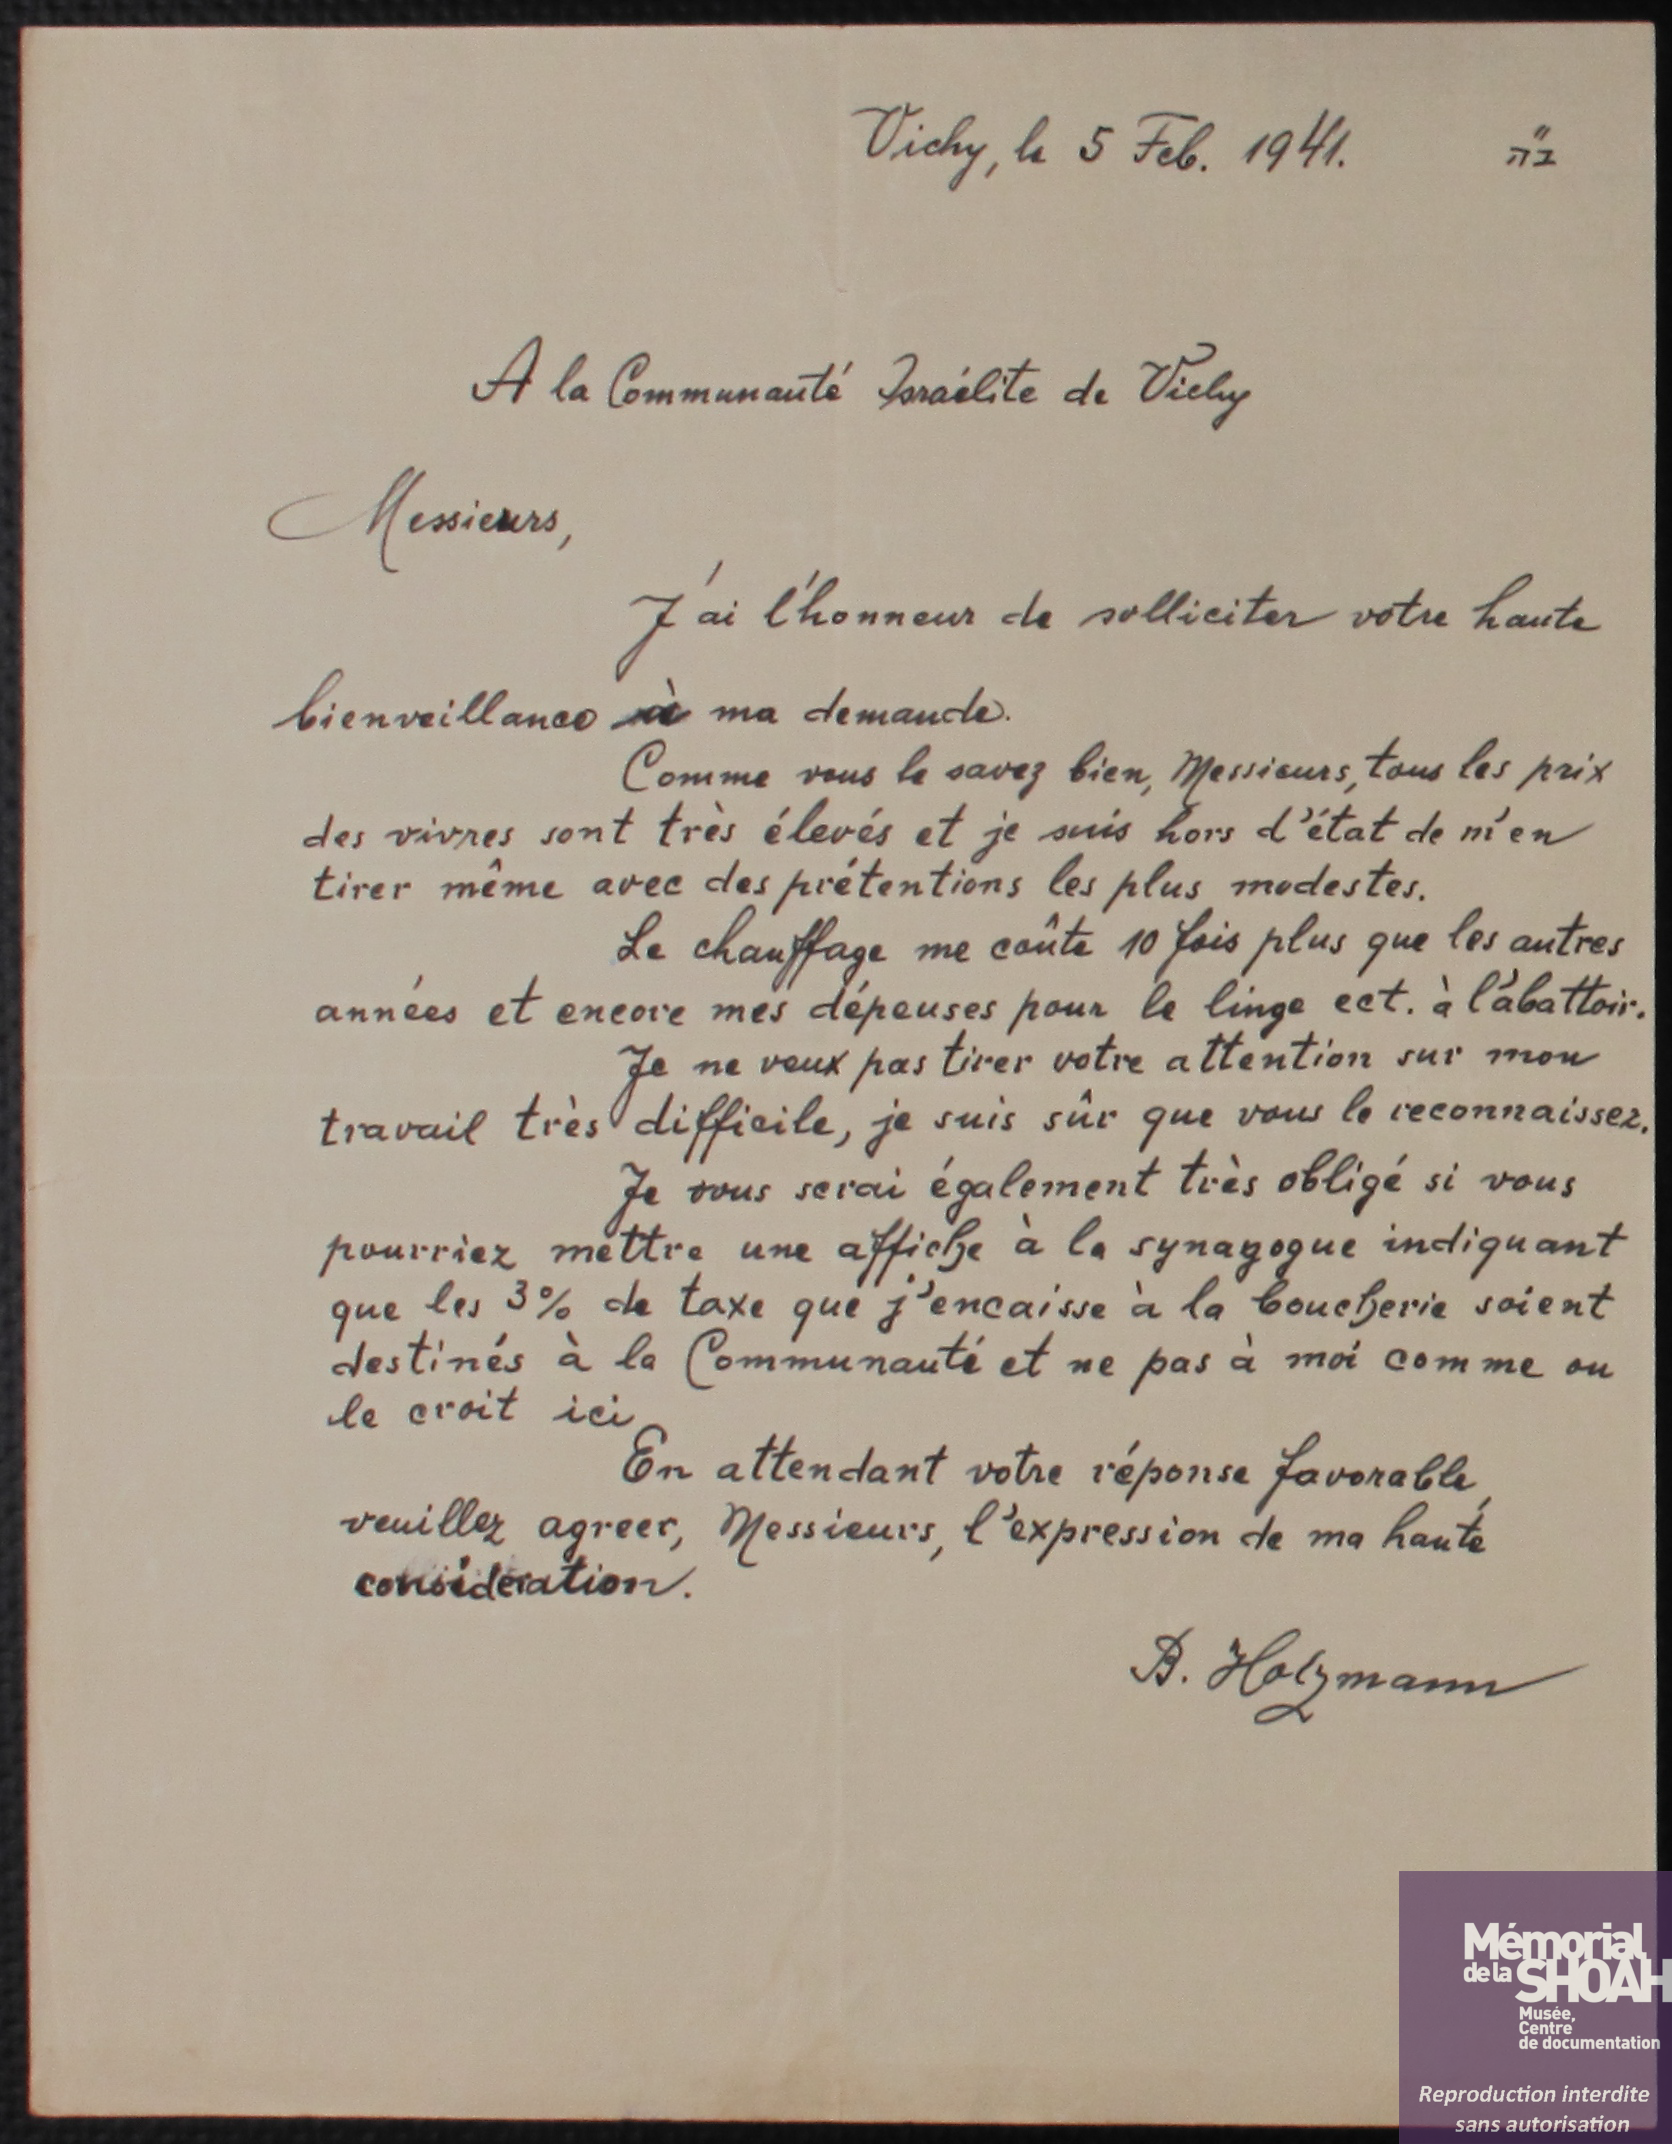 Vichy, le 5 Feb. 1941. ב״ה
A la Communauté Israélite de Vichy
Messieurs,
J'ai l'honneur de solliciter votre haute
bienveillance à ma demande.
Comme vous le savez bien, Messieurs, tous les prix
des vivres sont très élevés et je suis hors d'état de m'en
tirer même avec des prétentions les plus modestes.
Le chauffage me coûte 10 fois plus que les autres
années et encore mes dépenses pour le linge ect. à l'abattoir.
Je ne veux pas tirer votre attention sur mon
travail très difficile, je suis sûr que vous le reconnaissez.
Je vous serai également très obligé si vous
pourriez mettre une affiche à la synagogue indiquant
que les 3% de taxe que j'encaisse à la boucherie soient
destinés à la Communauté et ne pas à moi comme on
le croit ici
En attendant votre réponse favorable,
veuillez agreer, Messieurs, l'expression de ma haute
considération.
B. Holzmann
Mémorial
de la SHOAH
Musée,
Centre
de documentation
Reproduction interdite
sans autorisation